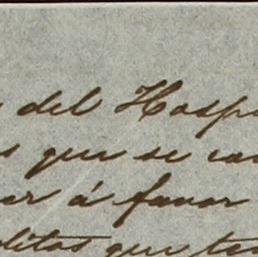 del Hosp
que se ca
er á favor
ditos que te